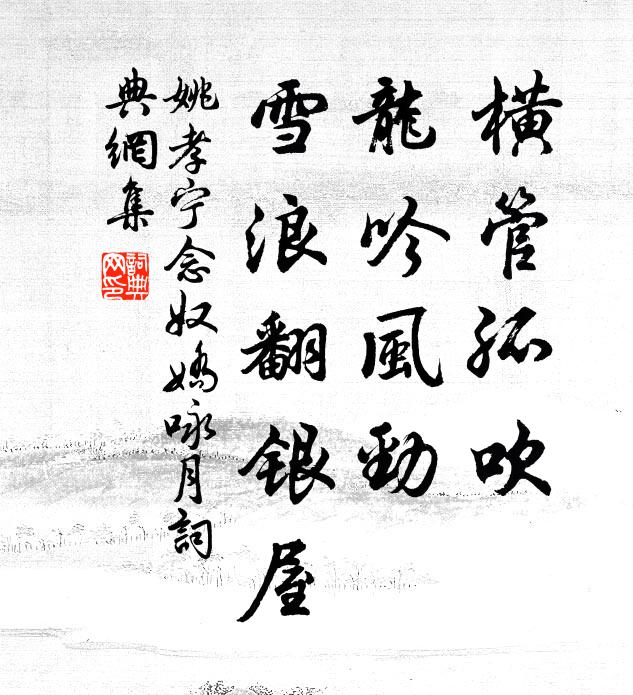 橫管孤吹
龍吟風勁
雪浪翻銀屋
姚孝宁念奴嬌咏月詞
典網集
詞典网印